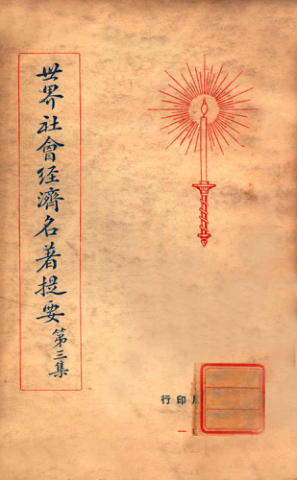 世界社會经濟名著提要
第三集
行印